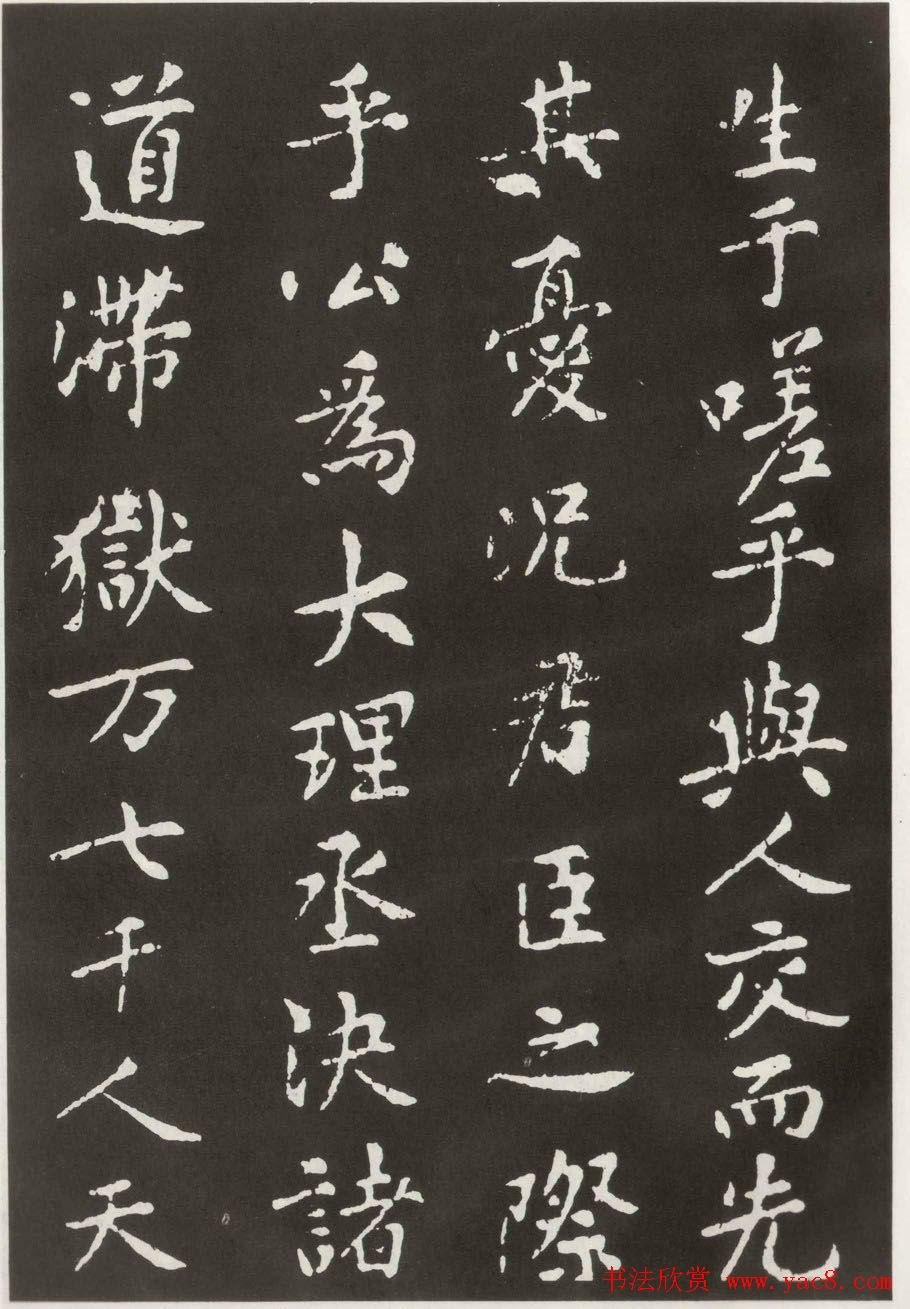 生于嗟乎與人交而先
其憂況君臣之際
乎公爲大理丞決諸
道滯獄万七千人天
书法欣赏 www.yac8.com